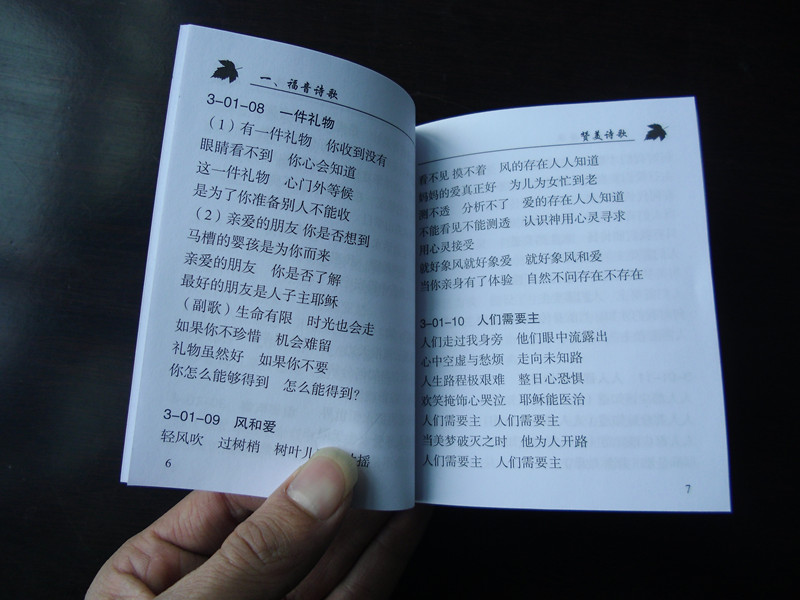 一、福音诗歌
3-01-08 一件礼物
（1）有一件礼物 你收到没有
眼睛看不到 你心会知道
这一件礼物 心门外等候
是为了你准备别人不能收
（2）亲爱的朋友 你是否想到
马槽的婴孩是为你而来
亲爱的朋友 你是否了解
最好的朋友是人子主耶稣
（副歌）生命有限 时光也会走
如果你不珍惜 机会难留
礼物虽然好 如果你不要
你怎么能够得到 怎么能得到？
3-01-09 风和爱
轻风吹 过树梢 树叶儿 摇
6
赞美诗歌
看不见 摸不着 风的存在人人知道
妈妈的爱真正好 为儿为女忙到老
测不透 分析不了 爱的存在人人知道
不能看见不能测透 认识神用心灵寻求
用心灵接受
就好象风就好象爱 就好象风和爱
当你亲身有了体验 自然不问存在不存在
3-01-10 人们需要主
人们走过我身旁 他们眼中流露出
心中空虚与愁烦 走向未知路
人生路程极艰难 整日心恐惧
欢笑掩饰心哭泣 耶稣能医治
人们需要主 人们需要主
当美梦破灭之时 他为人开路
人们需要主 人们需要主
7